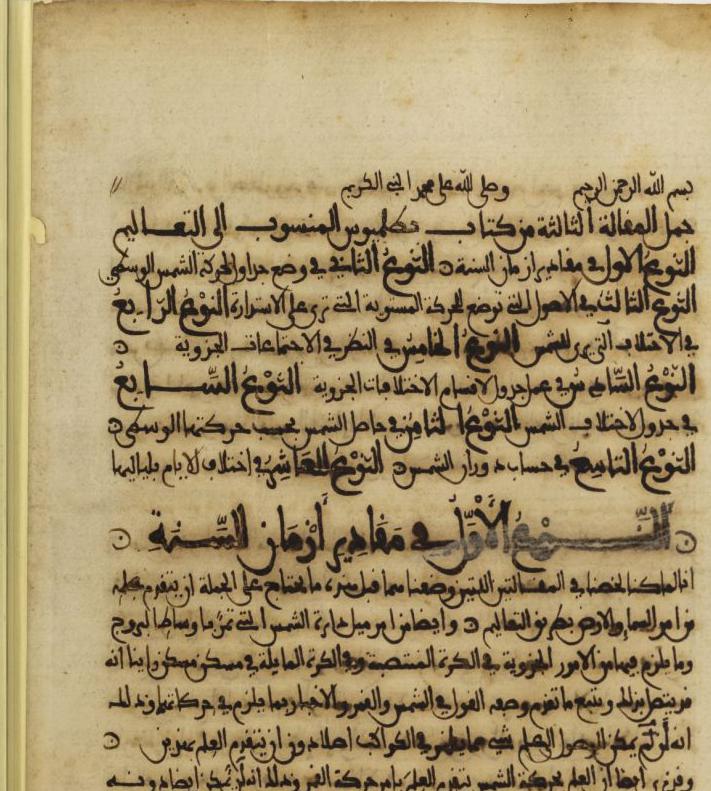 بسم الله الرحمن الرحيم وصلى الله على محمد النبي الكريم
جمل المقالة الثالثة من كتاب بطلميوس المنسوب الى التعاليم
النوع الاول في مقادير ازمان السنة النوع الثاني في وضع جداول لحركة الشمس الوسطى
النوع الثالث في الاصول التي توضع للحركة المستوية التي ترى على الاستدارة النوع الرابع
في الاختلاف الذي يرى للشمس النوع الخامس في النظر في الاختلافات الجزوية
النوع السادس في عمل جدول لاقسام الاختلافات الجزوية النوع السابع
في جدول الاختلاف الشمس النوع الثامن في حاصل الشمس بحسب حركتها الوسطى
النوع التاسع في حساب دوران الشمس النوع العاشر في اختلاف الايام بلياليها
النوع الأول في مقادير أزمان السنة
انا لما كنا لخصنا في المقالتين اللتين وضعنا مما قبل هذه ما يحتاج على الجملة ان يتقدم علمه
من امر السماء والارض بطريق التعاليم وايضا من امر ميل دايرة الشمس التي تمر باوساط البروج
وما يلزم فيها من الامور الجزوية في الكرة المنتصبة وفي الكرة المايلة في مسكن مسكن راينا انه
قد ينتظم بذلك ويتبع ما تقدم وصفه القول في الشمس والقمر والاخبار بما يلزم في حركاتهما وذلك
انه لم يمكن الوصول الى علم شي مما يظهر في الكواكب اصلا دون ان يتقدم العلم بهذين
ايضا ان العلم بحركة الشمس يتقدم العلم بامر حركة القمر وذلك انه لم يمكن ايضا دونه